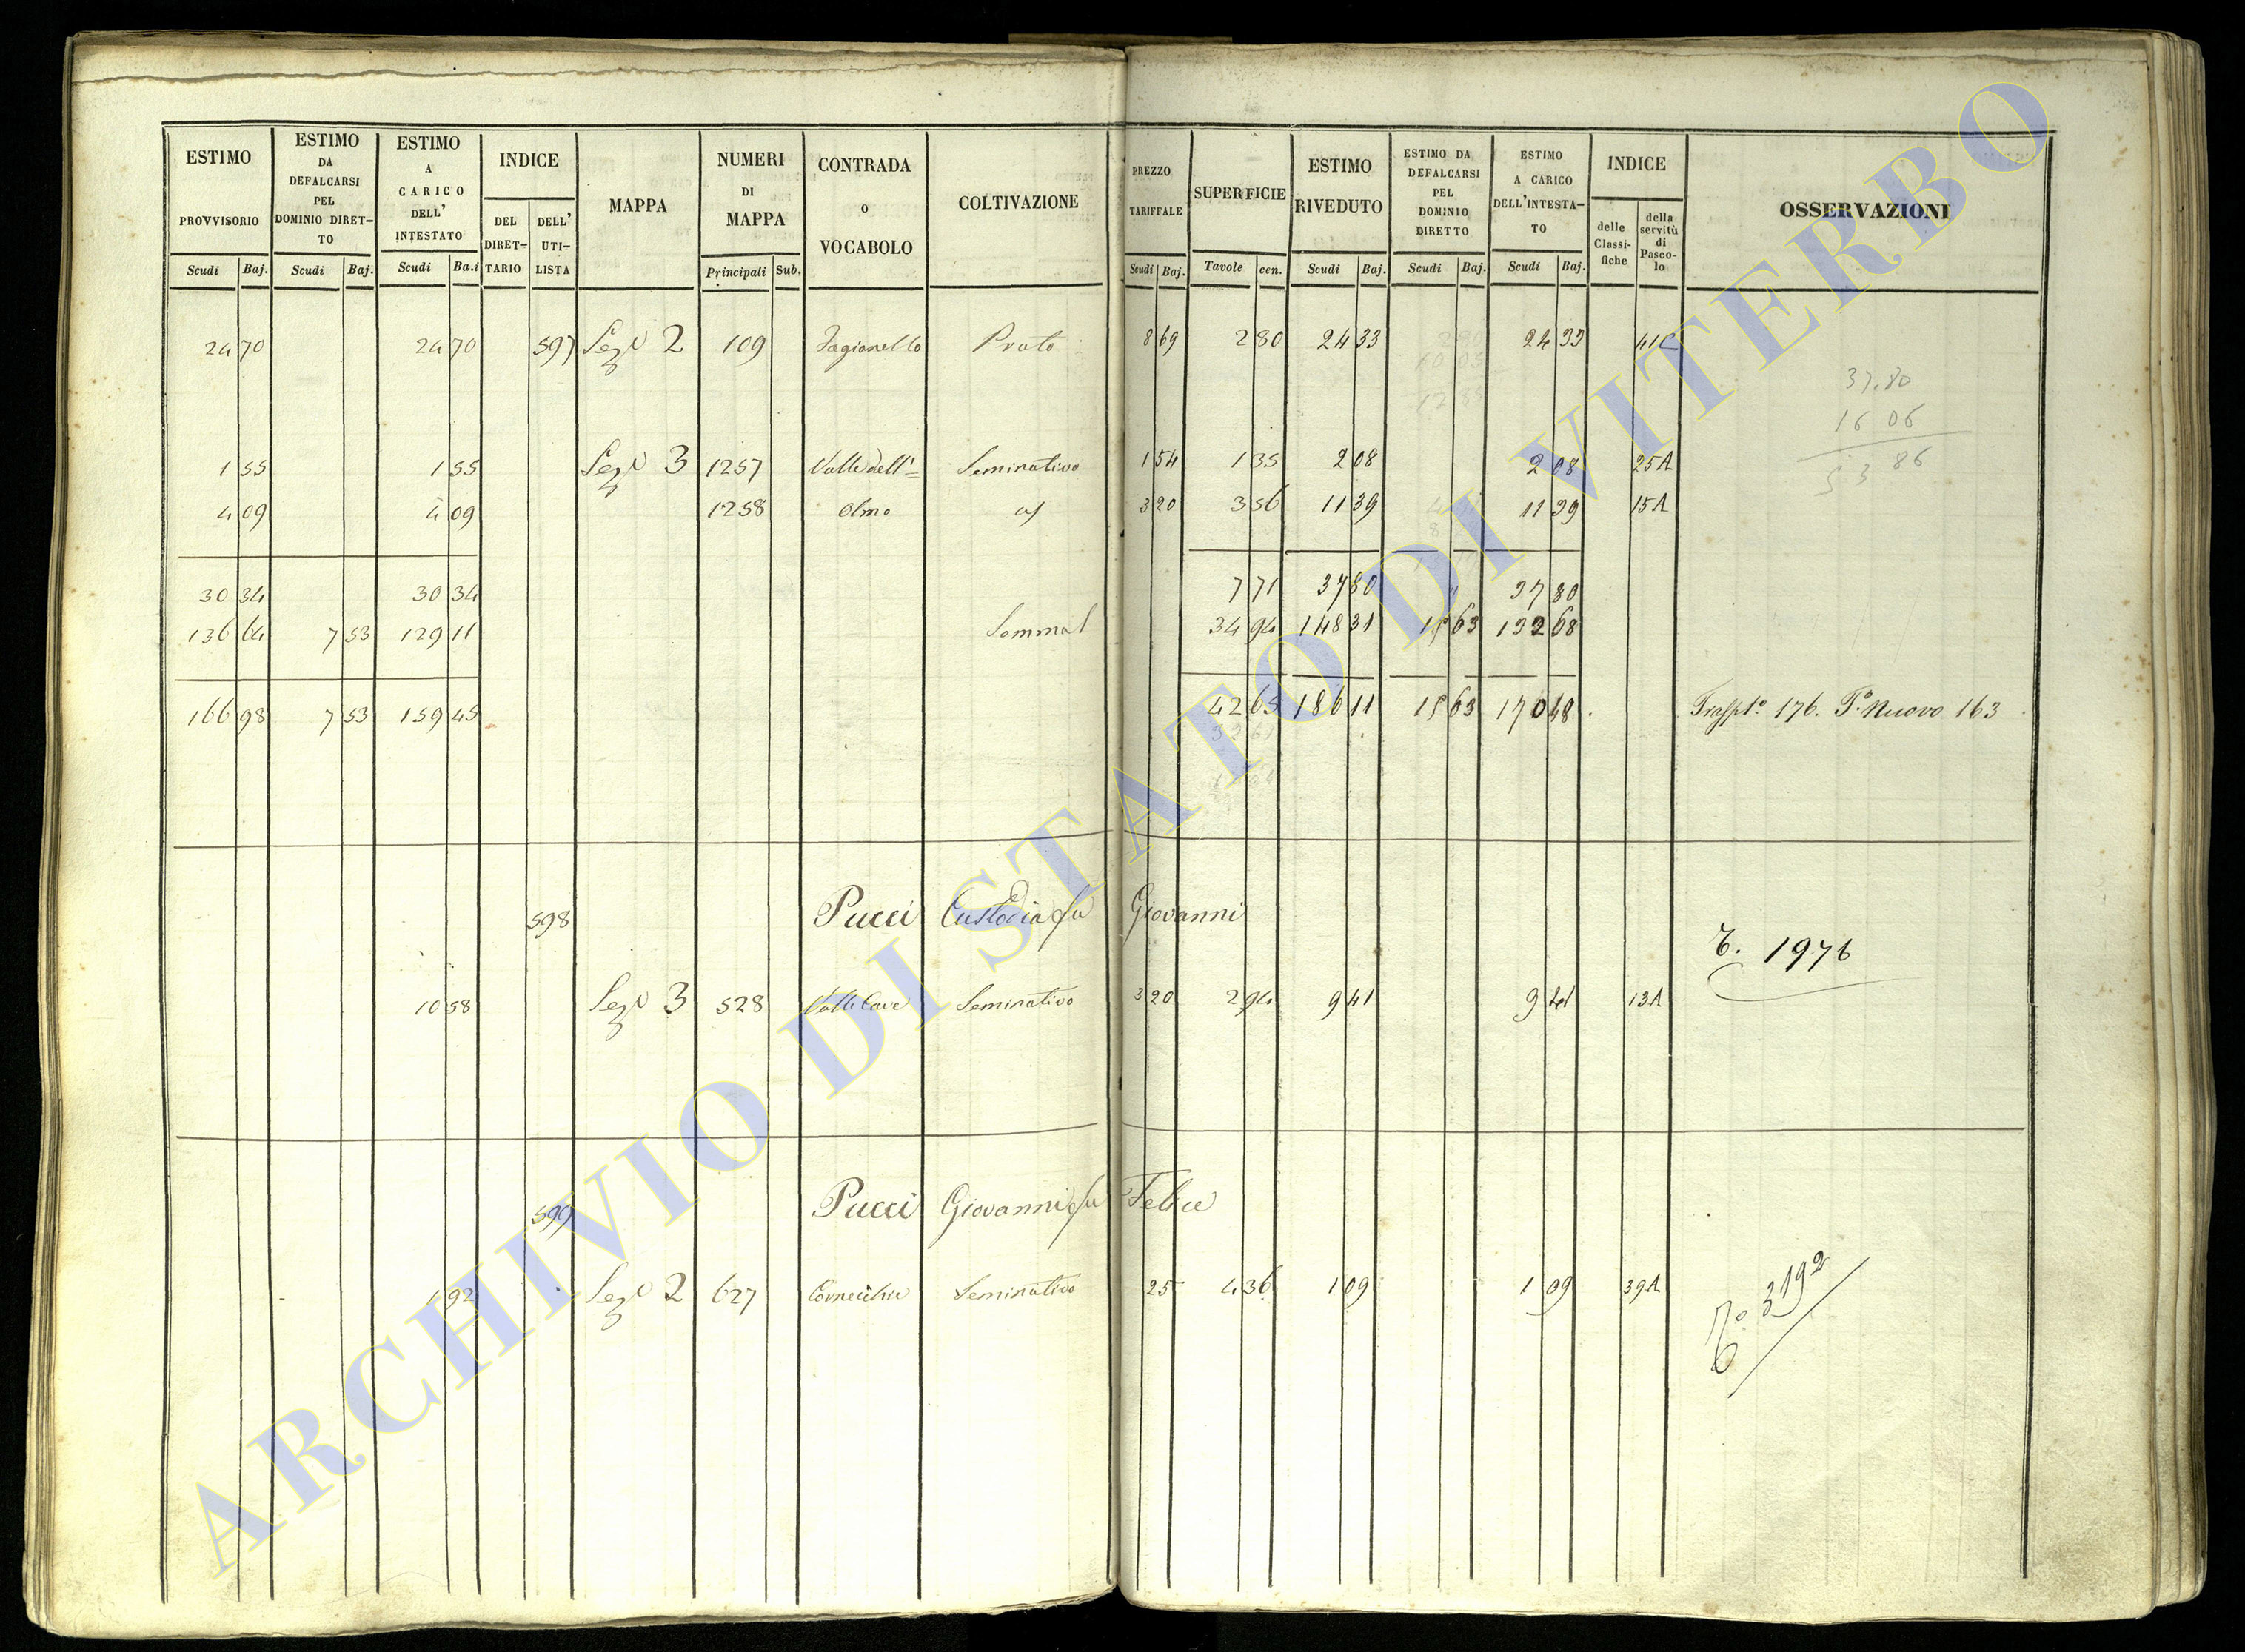 ESTIMO PROVVISORIO Scudi Baj.
ESTIMO DA DEFALCARSI PEL DOMINIO DIRET- TO Scudi Baj.
ESTIMO A CARICO DELL' INTESTATO Scudi Ba.i
INDICE DEL DIRET- TARIO DELL' UTI- LISTA
MAPPA
NUMERI DI MAPPA Principali Sub.
CONTRADA O VOCABOLO
COLTIVAZIONE
PREZZO TARIFFALE Scudi Baj.
SUPERFICIE Tavole cen.
ESTIMO RIVEDUTO Scudi Baj.
ESTIMO DA DEFALCARSI PEL DOMINIO DIRETTO Scudi Baj.
ESTIMO A CARICO DELL'INTESTA- TO Scudi Baj.
INDICE delle Classi- fiche della servitù di Pasco- lo
OSSERVAZIONI
24 70 24 70 597 Sez 2 109 Fagianello Prato 8 69 2 80 24 33 24 33 41C
37.80
16 06
53 86
1 55 1 55 Sez 3 1257 Valle dell' Seminativo 1 54 1 35 2 08 2 08 25A
4 09 4 09 1258 Olmo 3 20 3 56 11 39 11 39 15A
30 34 30 34 7 71 37 80 37 80
136 64 7 53 129 11 Somma 34 94 148 31 15 63 132 68
166 98 7 53 159 45 42 65 186 11 15 63 170 48 176. T.o Nuovo 163
598 Pucci Custodia fu Giovanni
T. 1976
10 58 Sez 3 528 Valle Cave Seminativo 3 20 2 94 9 41 9 41 13A
599 Pucci Giovanni fu Felice
1 92 Sez 2 627 Cornecchie Seminativo 25 4 36 1 09 1 09 39A
T.o 3192
ARCHIVIO DI STATO DI VITERBO